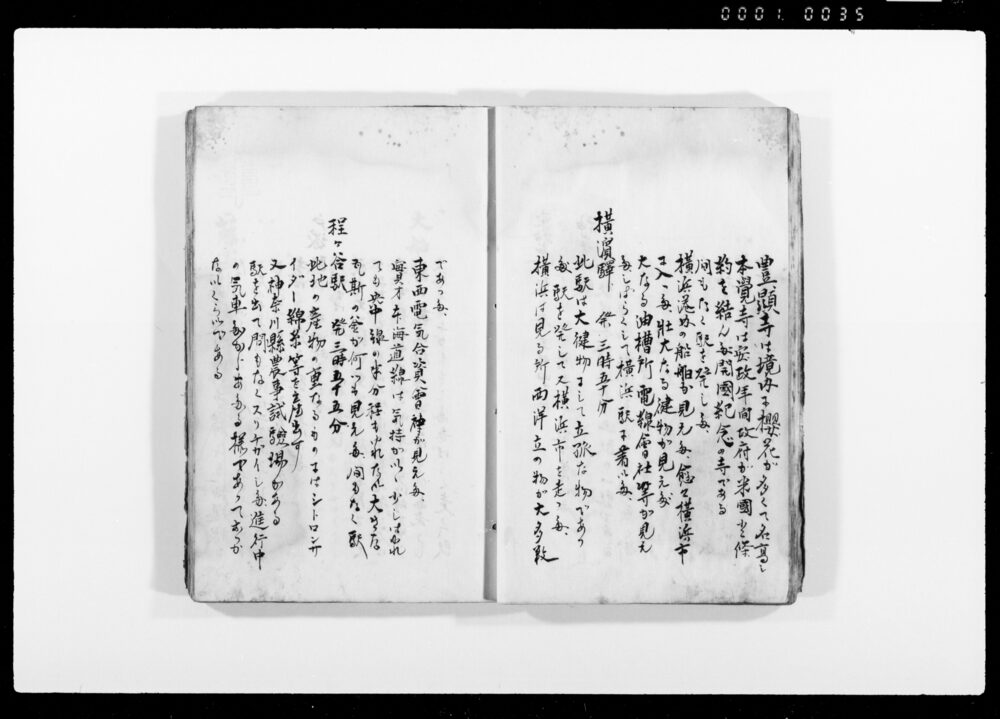 0001 0035
豊顕寺は境内に櫻花が多くて名高し
本覺寺は安政年間政府が米國と條
約を結んだ開國紀念の寺である
間もなく駅を発した
横浜港内の船舶も見えた、愈々横浜市
に入った、壮大なる建物が見えた
大なる油槽所電線會社等が見え
た、しばらくして横浜駅に着いた、
横濱驛 発三時五十分
此駅は大建物にして立派な物であつ
た、駅を発して又横浜市を走つた、
横浜は見る所西洋立の物が大多数
であつた、
東西電気合資會神が見えた、
實才東海道線は気持がいい少しはゆれ
ても中線の半分程もゆれない大きな
瓦斯の釜が何つも見えた、間もなく駅
程ヶ谷駅 発三時五十五分
此地の産物の重なるものにはシトロンサ
イダー綿糸等を産出す
又神奈川縣農事試驗場がある
駅を出て間もなくスリチガイした進行中
の汽車
ないくらいである